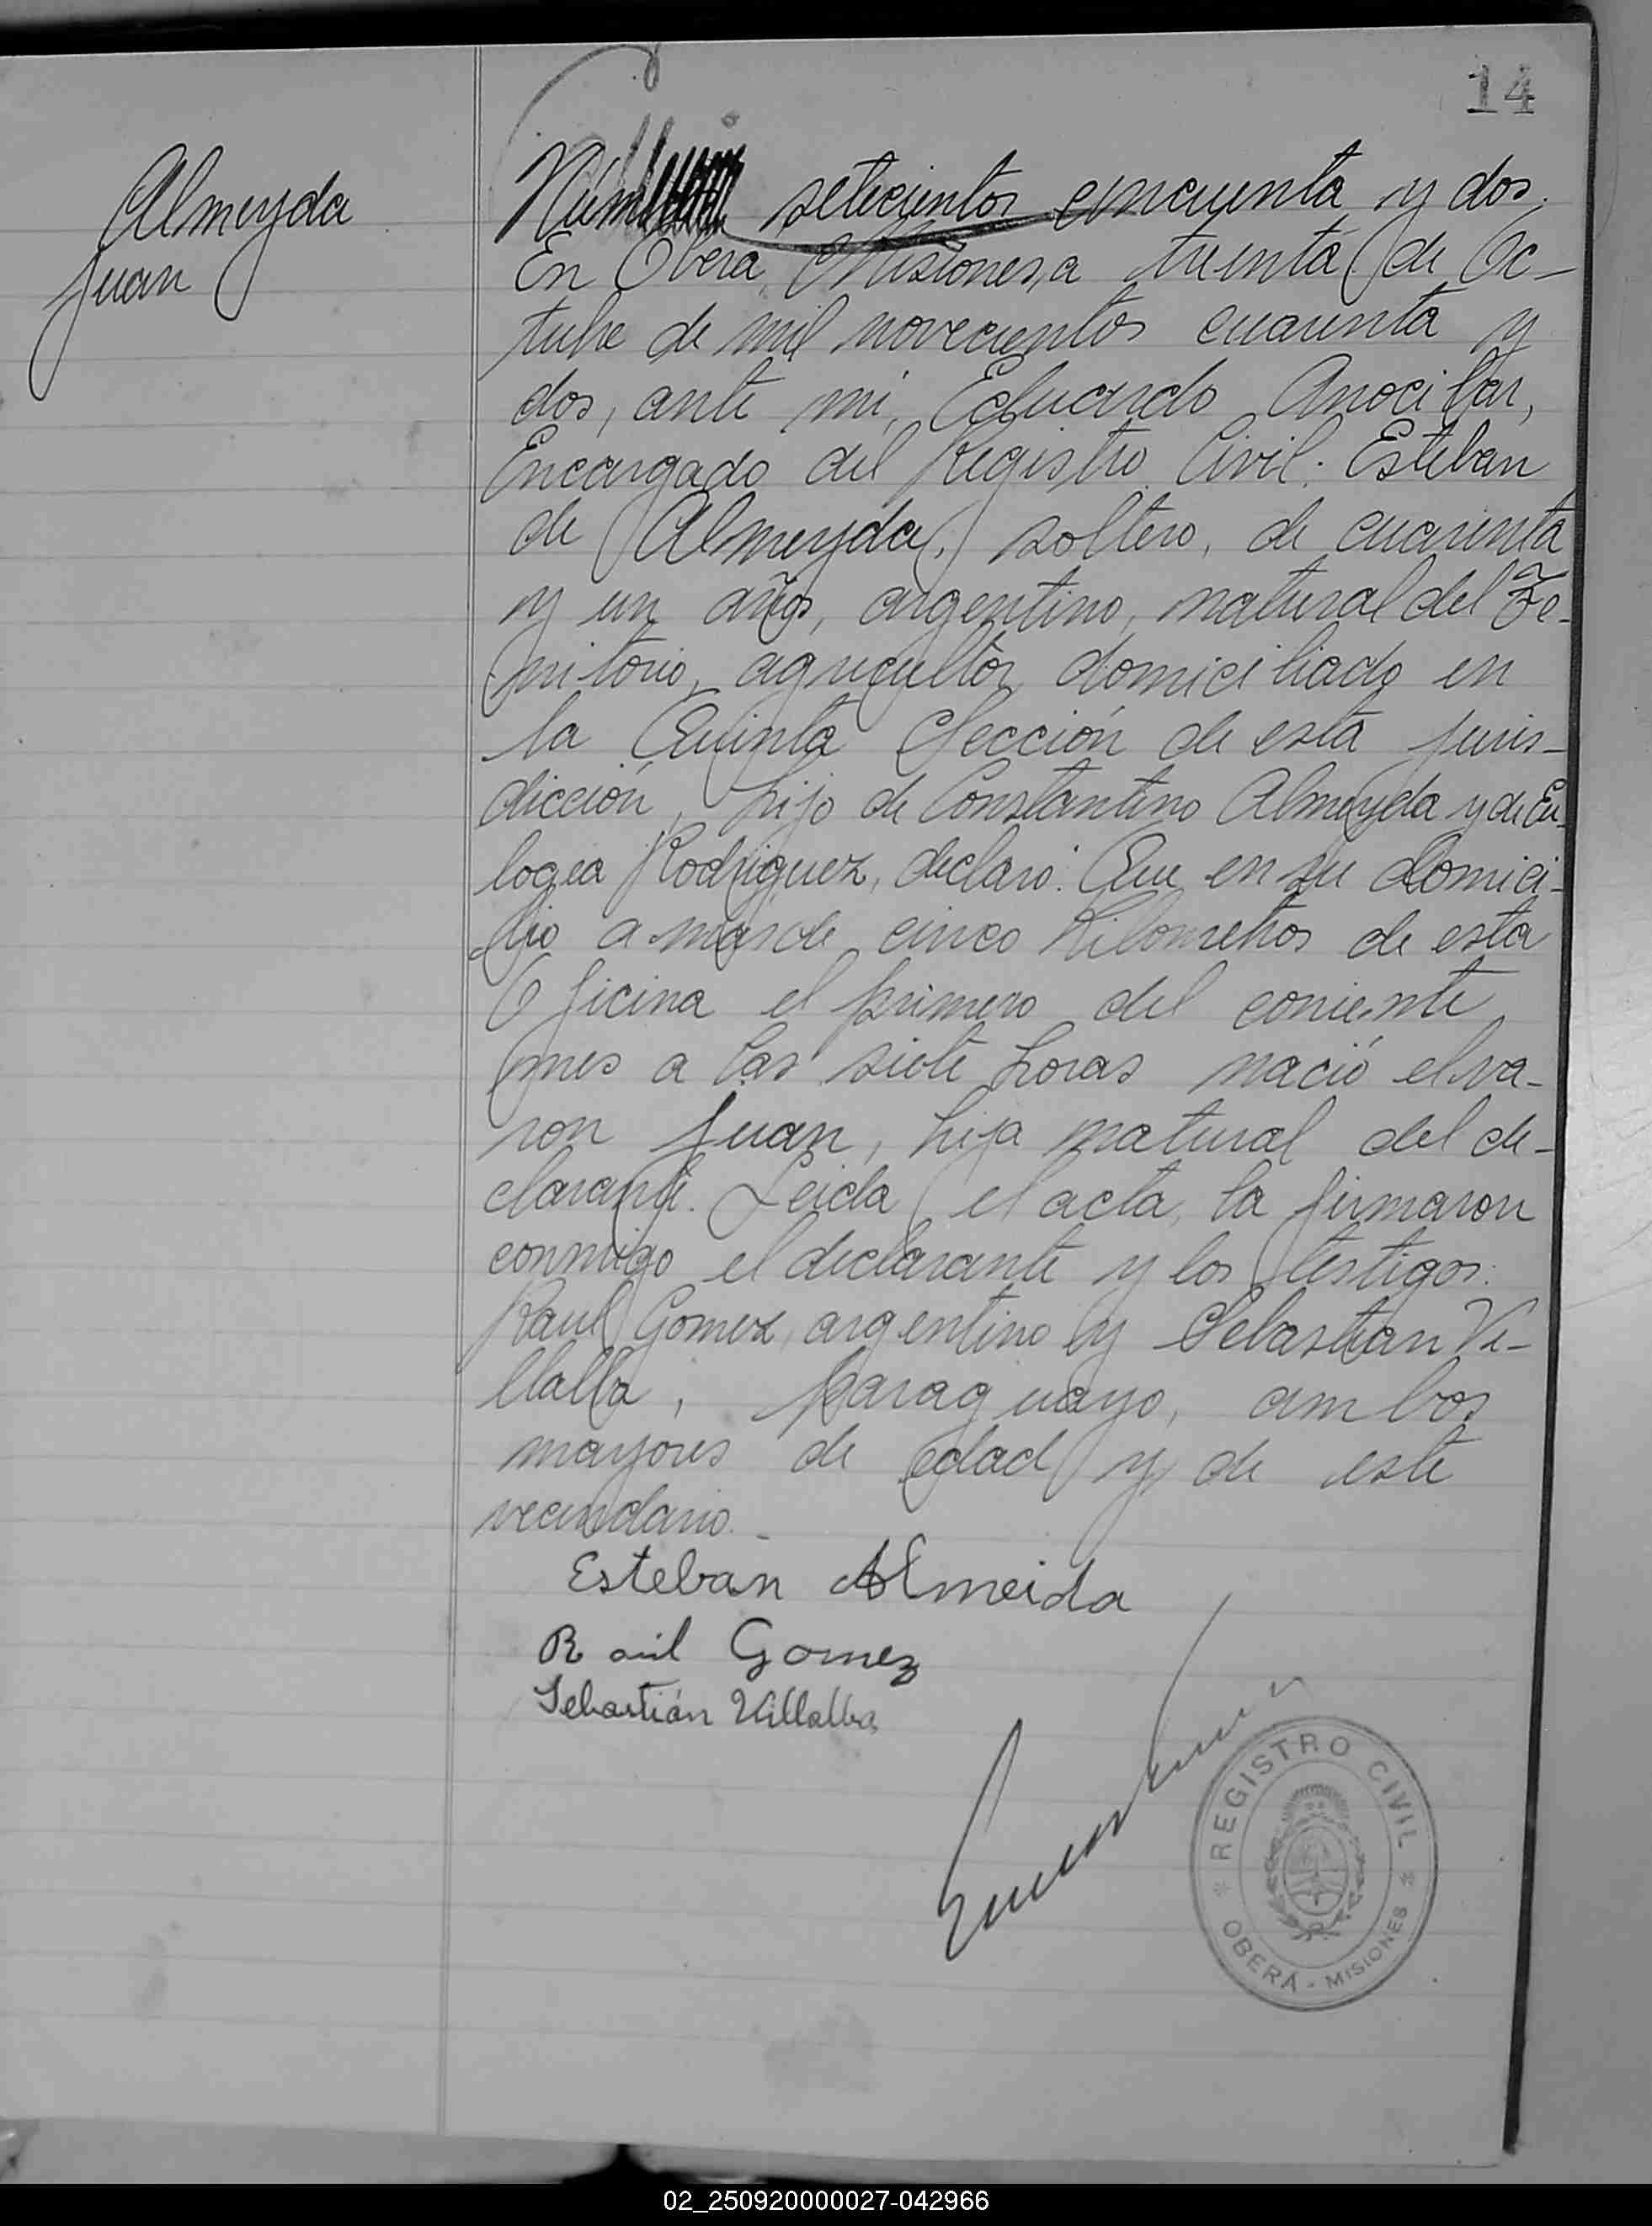 14
Almeyda
Juan
setecientos cincuenta y dos.
En Oberá, Misiones, a treinta de Oc-
tubre de mil novecientos cuarenta y
dos, ante mi, Eduardo Anocibar,
Encargado del Registro Civil: Esteban
de Almeyda, soltero, de cuarenta
y un años, argentino, natural del Te-
rritorio, agricultor domiciliado en
la Quinta Sección de esta juris-
dicción, hijo de Constantino Almeyda y de Eu-
logia Rodriguez, declaró: Que en su domici-
lio a mas de cinco Kilometros de esta
Oficina el primero del corriente
mes a las siete horas nació el va-
ron Juan, hija natural del de-
clarante. Leida el acta, la firmaron
conmigo el declarante y los testigos:
Raul Gomez, argentino y Sebastian Vi-
llalba, paraguayo, ambos
mayores de edad y de este
vecindario.-
Esteban Almeida
Raúl Gomez
Sebastián Villalba
REGISTRO CIVIL
OBERÁ - MISIONES
02_250920000027-042966